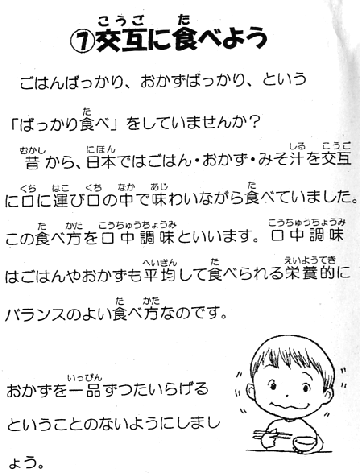 ⑦交互に食べよう
ごはんばっかり、おかずばっかり、という
「ばっかり食べ」をしていませんか？
昔から、日本ではごはん・おかず・みそ汁を交互
に口に運び口の中で味わいながら食べていました。
この食べ方を口中調味といいます。口中調味
はごはんやおかずも平均して食べられる栄養的に
バランスのよい食べ方なのです。
おかずを一品ずつたいらげる
ということのないようにしまし
ょう。